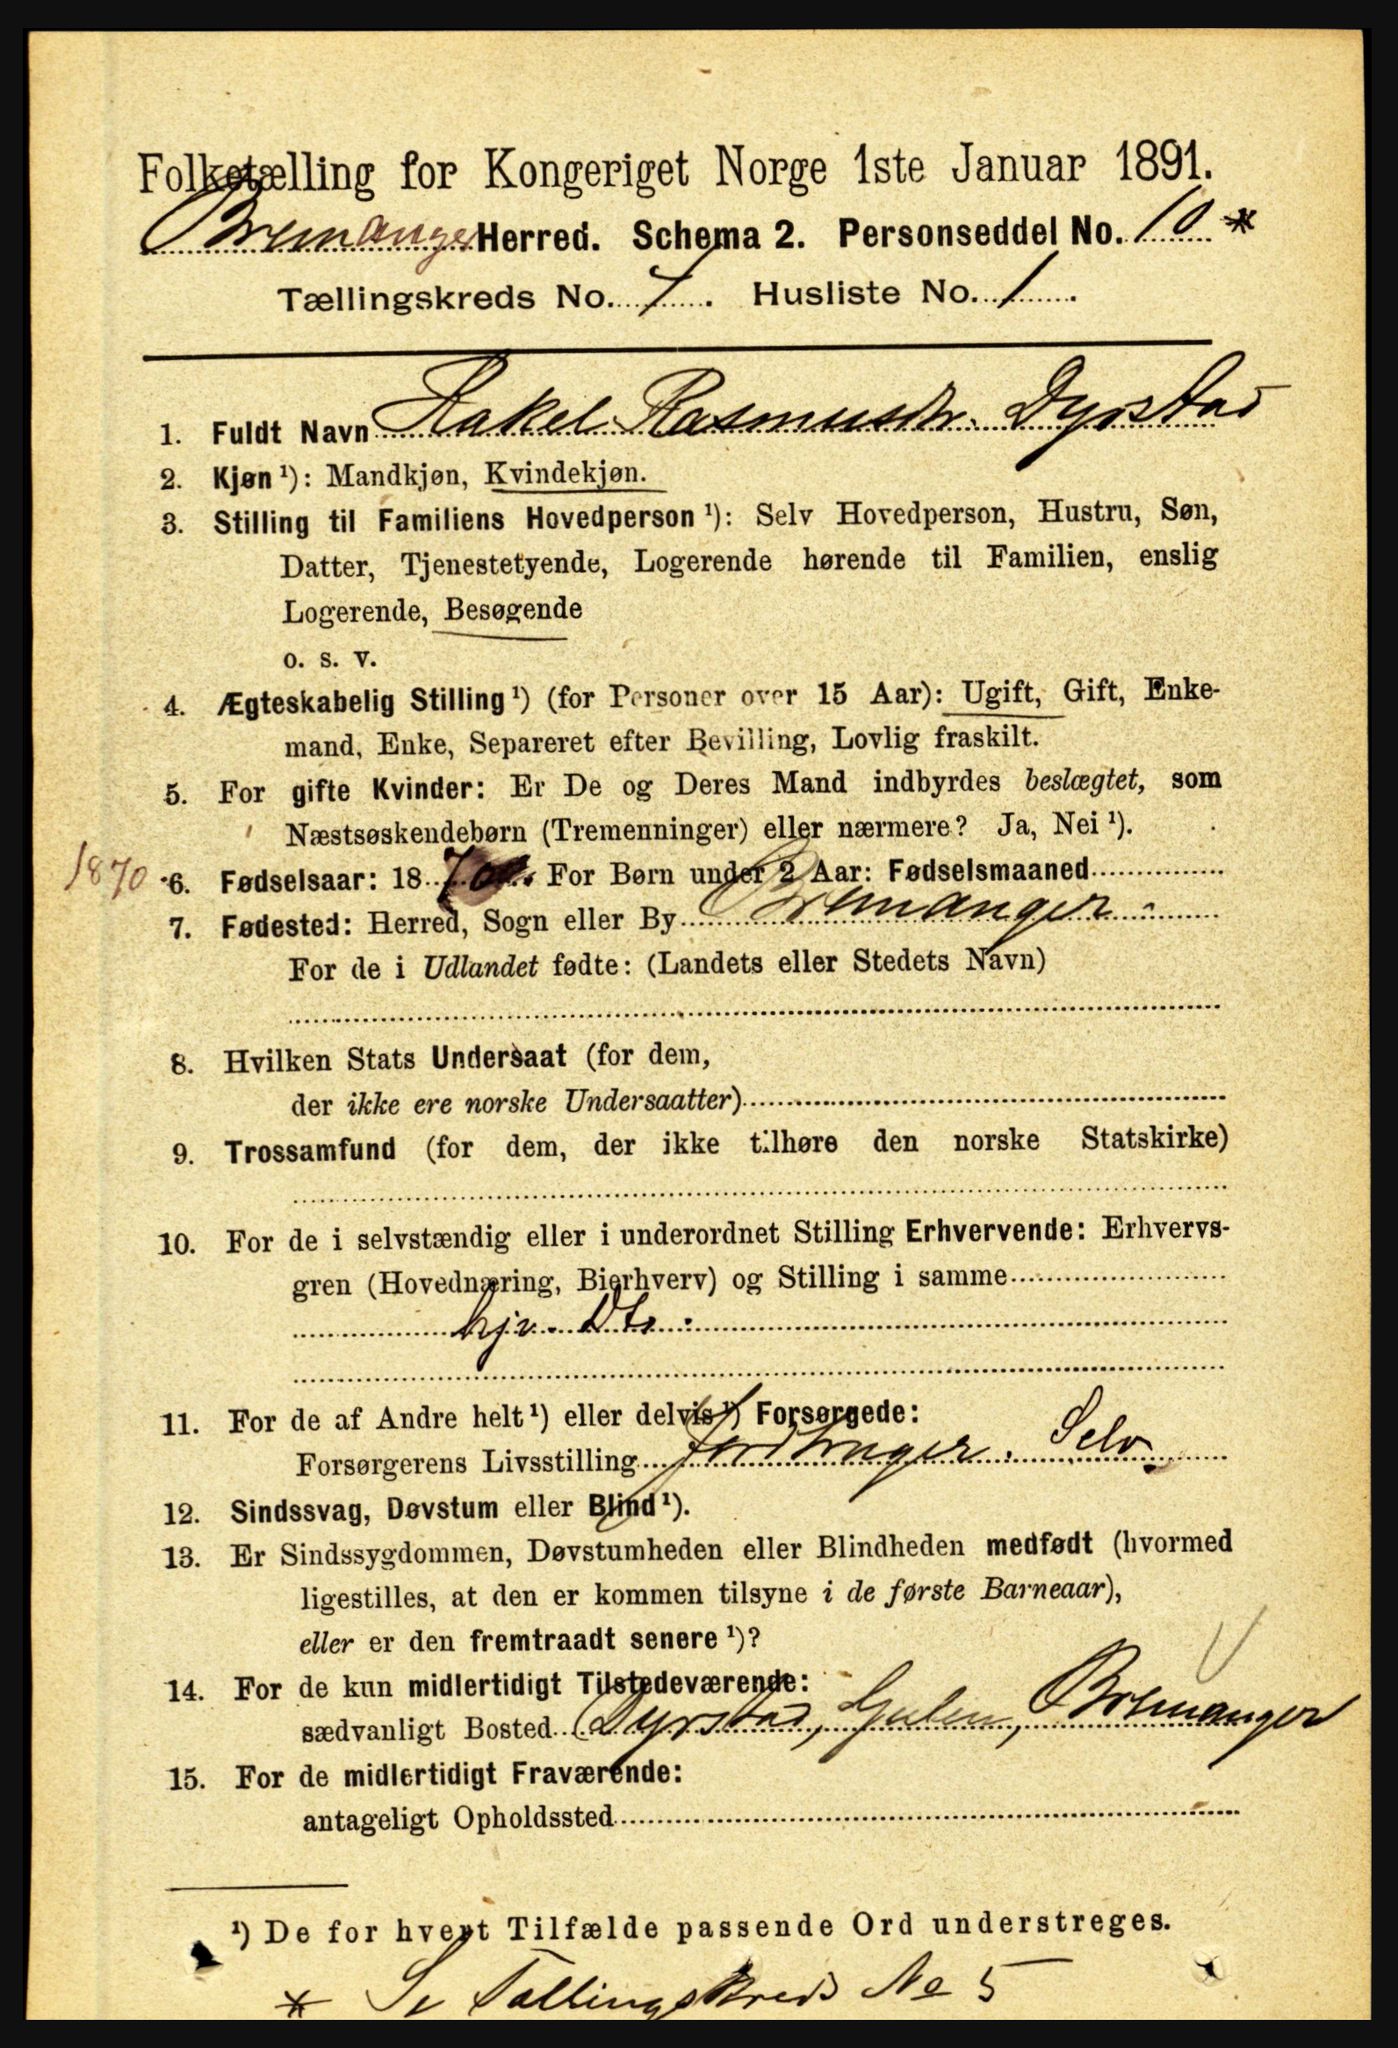 Folketælling for Kongeriget Norge 1ste Januar 1891.
Bremanger Herred. Schema 2. Personseddel No. 10 *
Tællingskreds No. 7. Husliste No. 1.
1. Fuldt Navn Rakel Rasmusdr. Dyrstad
2. Kjøn ¹): Mandkjøn, Kvindekjøn.
3. Stilling til Familiens Hovedperson ¹): Selv Hovedperson, Hustru, Søn,
Datter, Tjenestetyende, Logerende hørende til Familien, enslig
Logerende, Besøgende
o. s. v.
4. Ægteskabelig Stilling ¹) (for Personer over 15 Aar): Ugift, Gift, Enke-
mand, Enke, Separeret efter Bevilling, Lovlig fraskilt.
5. For gifte Kvinder: Er De og Deres Mand indbyrdes beslægtet, som
Næstsøskendebørn (Tremenninger) eller nærmere? Ja, Nei ¹).
1870 6. Fødselsaar: 1870. For Børn under 2 Aar: Fødselsmaaned
7. Fødested: Herred, Sogn eller By Bremanger.
For de i Udlandet fødte: (Landets eller Stedets Navn)
8. Hvilken Stats Undersaat (for dem,
der ikke ere norske Undersaatter)
9. Trossamfund (for dem, der ikke tilhøre den norske Statskirke)
10. For de i selvstændig eller i underordnet Stilling Erhvervende: Erhvervs-
gren (Hovednæring, Bierhverv) og Stilling i samme
hjv. Dtr.
11. For de af Andre helt ¹) eller delvis ¹) Forsørgede:
Forsørgerens Livsstilling Jordbruger. Selv.
12. Sindssvag, Døvstum eller Blind ¹).
13. Er Sindssygdommen, Døvstumheden eller Blindheden medfødt (hvormed
ligestilles, at den er kommen tilsyne i de første Barneaar),
eller er den fremtraadt senere ¹)?
14. For de kun midlertidigt Tilstedeværende:
sædvanligt Bosted Dyrstad, Gulen, Bremanger
15. For de midlertidigt Fraværende:
antageligt Opholdssted
¹) De for hvert Tilfælde passende Ord understreges.
* Se Tællingskreds No 5